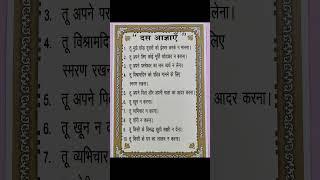 " दस आज्ञाएँ "
1. तू मुझे छोड़ दूसरों को ईश्वर करके न मानना।
2. तू अपने लिए कोई मूर्ति खोदकर न
3. तू अपने परमेश्वर का नाम व्यर्थ न लेना।
4. तू विश्रामदिन को पवित्र मानने के लिए
स्मरण रखना।
5. तू अपने पिता और अपनी माता का आदर करना।
6. तू खून न करना।
7. तू व्यभिचार न करना।
8. तू चोरी न करना।
9. तू किसी के विरुद्ध झूठी साक्षी न देना।
10. तू किसी के घर का लालच न करना।
3. तू अपने
4. तू विश्रामदि
स्मरण रखन
5. तू अपने पि
आदर करना।
6. तू खून न
7. तू व्यभिचार